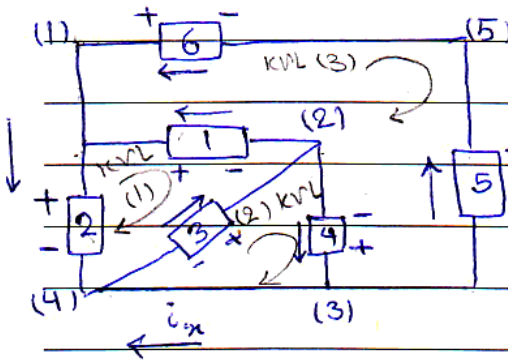 (1) + 6 - (5)
KVL (3)
1 (2)
+ -
KVL
(1)
+ 2 -
3 + -
(2) KVL
4 - +
5
(4) (3)
iₓ